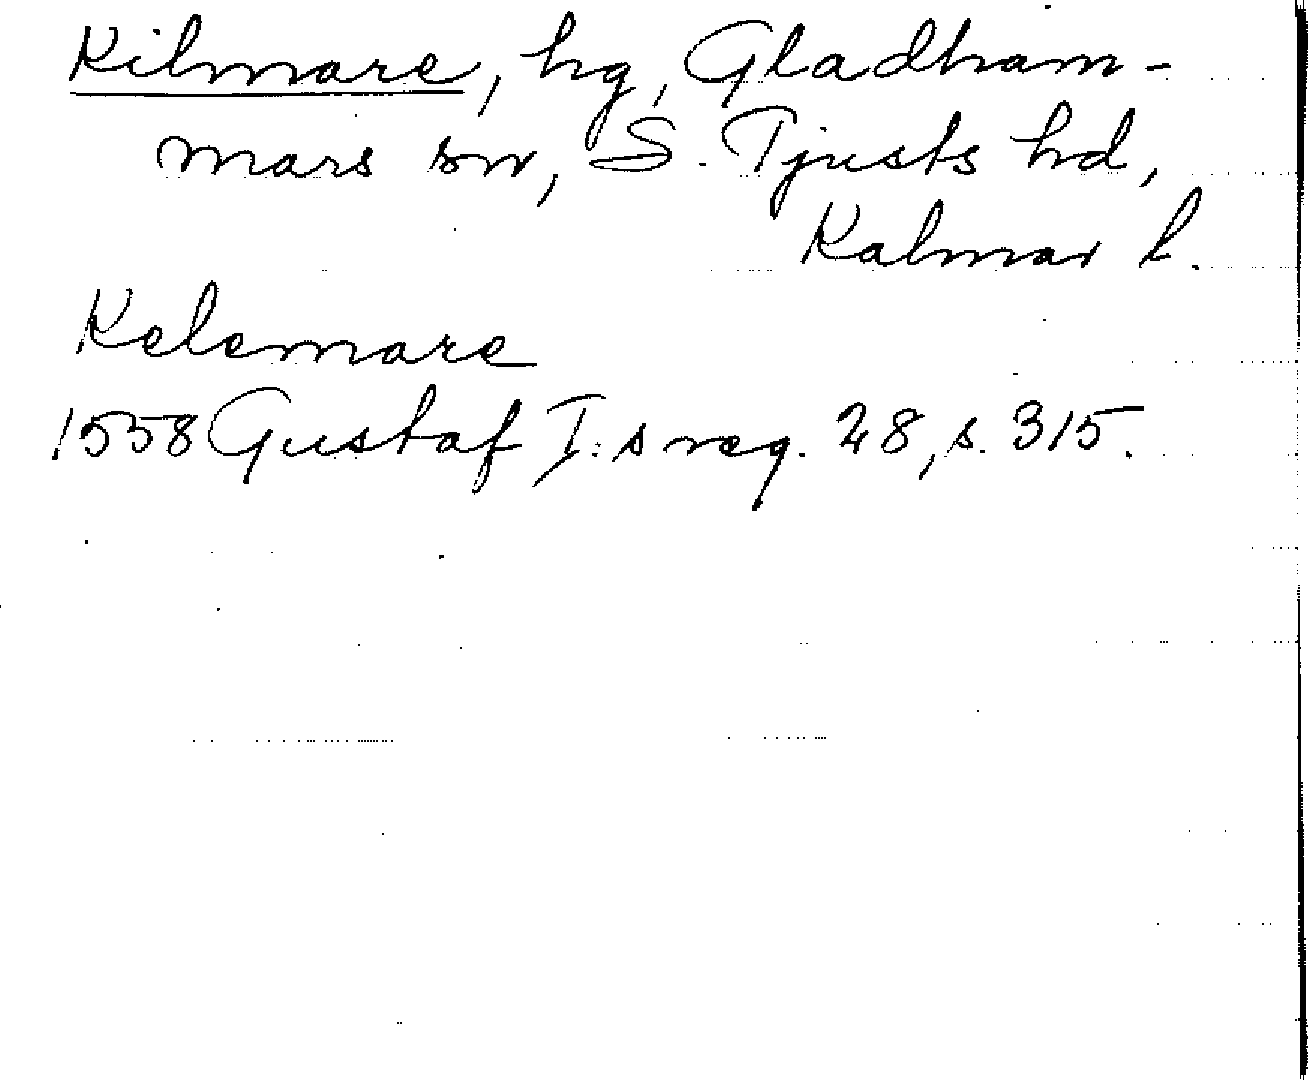 Kilmare, hg, Gladham-
mars sn, S. Tjusts hd,
Kalmar l.
Kelemare
1558 Gustaf I:s reg. 28, s. 315.